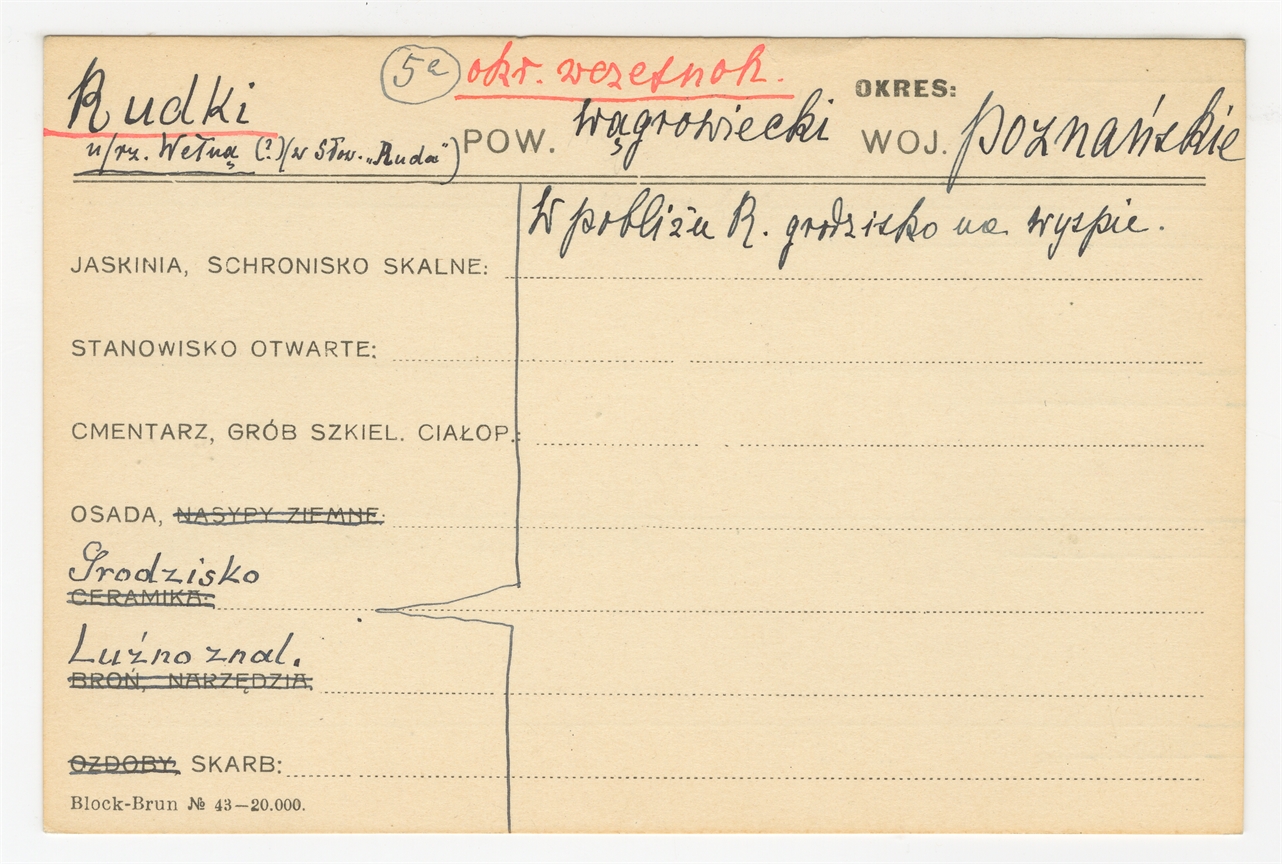 Rudki
5a okr. wczesnoh.
OKRES:
n/rz. Wełną (?)(w Słow. „Ruda")
POW. wągrowiecki
WOJ. poznańskie
W pobliżu R. grodzisko na wyspie.
JASKINIA, SCHRONISKO SKALNE:
STANOWISKO OTWARTE:
CMENTARZ, GRÓB SZKIEL. CIAŁOP.:
OSADA, NASYPY ZIEMNE:
Grodzisko
CERAMIKA:
Luźno znal.
BROŃ, NARZĘDZIA:
OZDOBY, SKARB:
Block-Brun № 43—20.000.